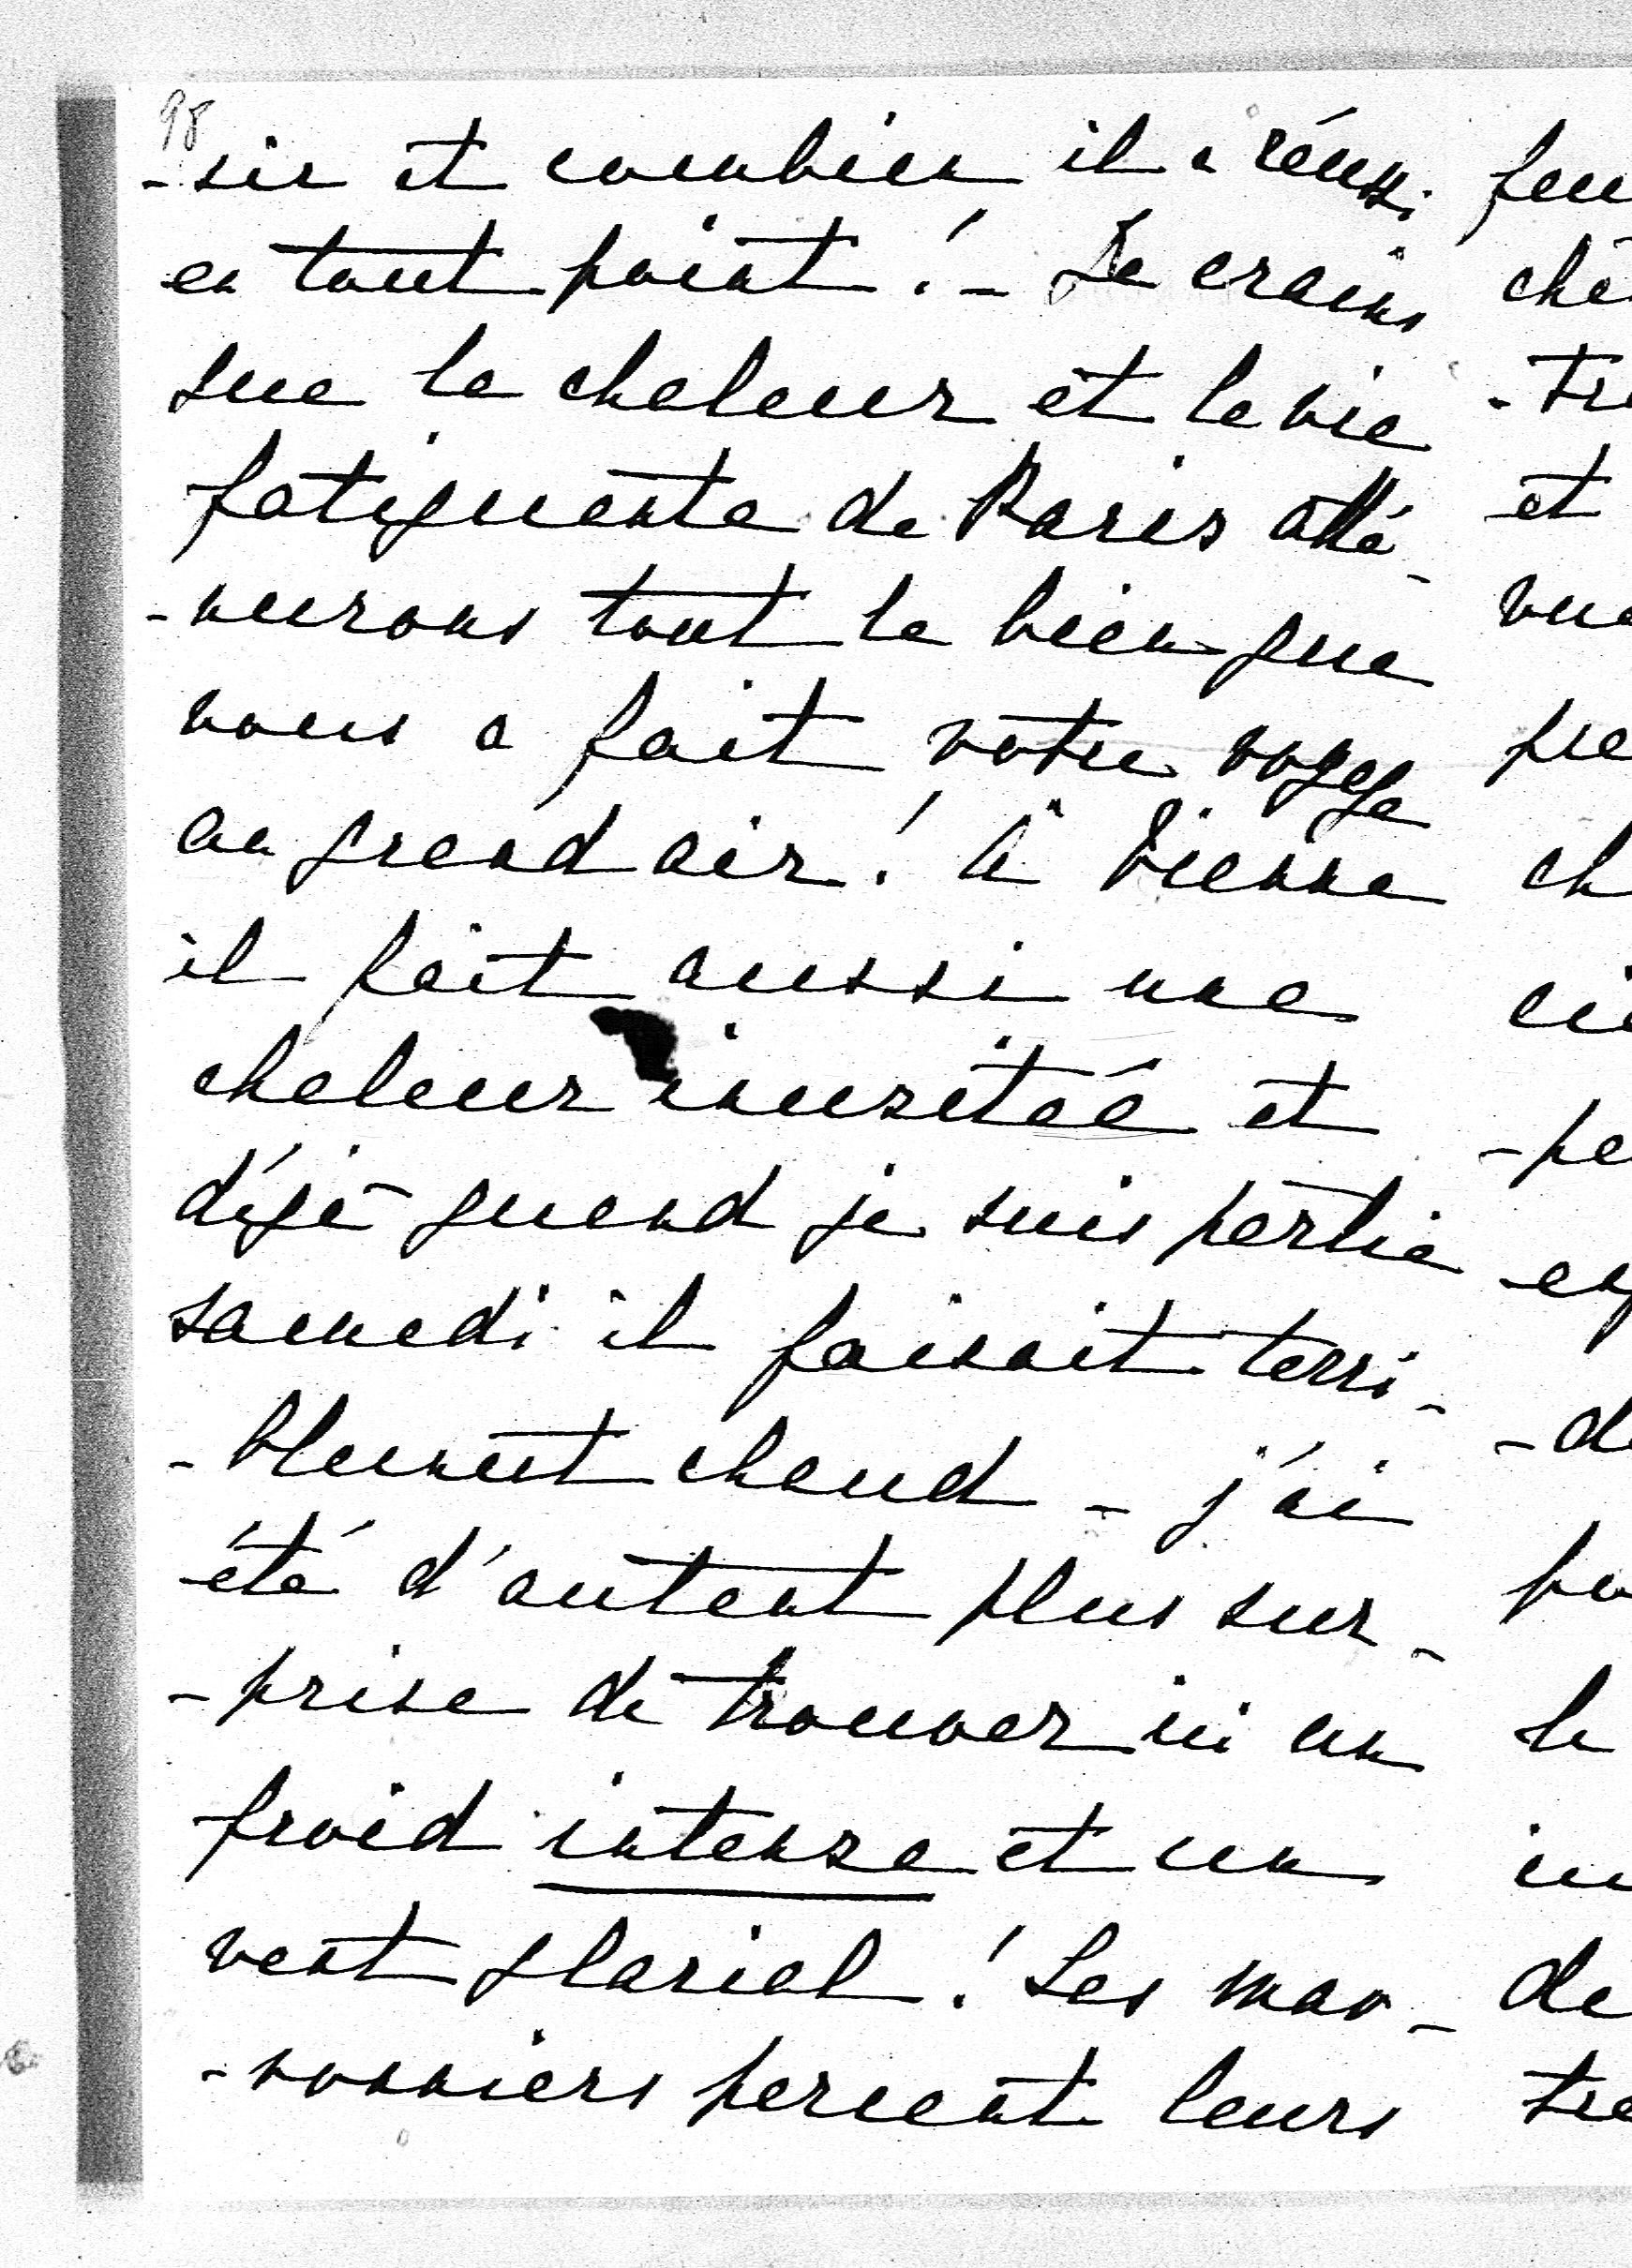 98
-sir et combien il a réussi
en tout point ! - Je crains
que la chaleur et la vie
fatiguante de Paris atté-
-nuerons tout le bien que
vous a fait votre voyage
au grand air ! à Vienne
il fait aussi une
chaleur inusitée et
déjà quand je suis partie
samedi il faisait terri-
-blement chaud - j'ai
été d'autant plus sur-
-prise de trouver ici un
froid intense et un
vent glacial ! Les mar-
-ronniers percent leurs